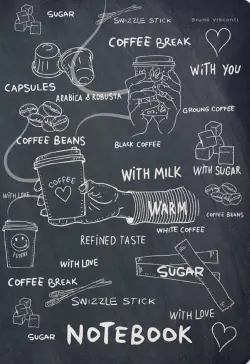 SUGAR
SWIZZLE STICK
Bruno Visconti
COFFEE BREAK
WITH YOU
CAPSULES
ARABICA & ROBUSTA
GROUND COFFEE
COFFEE BEANS
BLACK COFFEE
WITH MILK
WITH SUGAR
COFFEE
WITH LOVE
WARM
COFFEE BEANS
WHITE COFFEE
REFINED TASTE
WITH LOVE
SUGAR
COFFEE BREAK
SWIZZLE STICK
WITH LOVE
SUGAR
NOTEBOOK